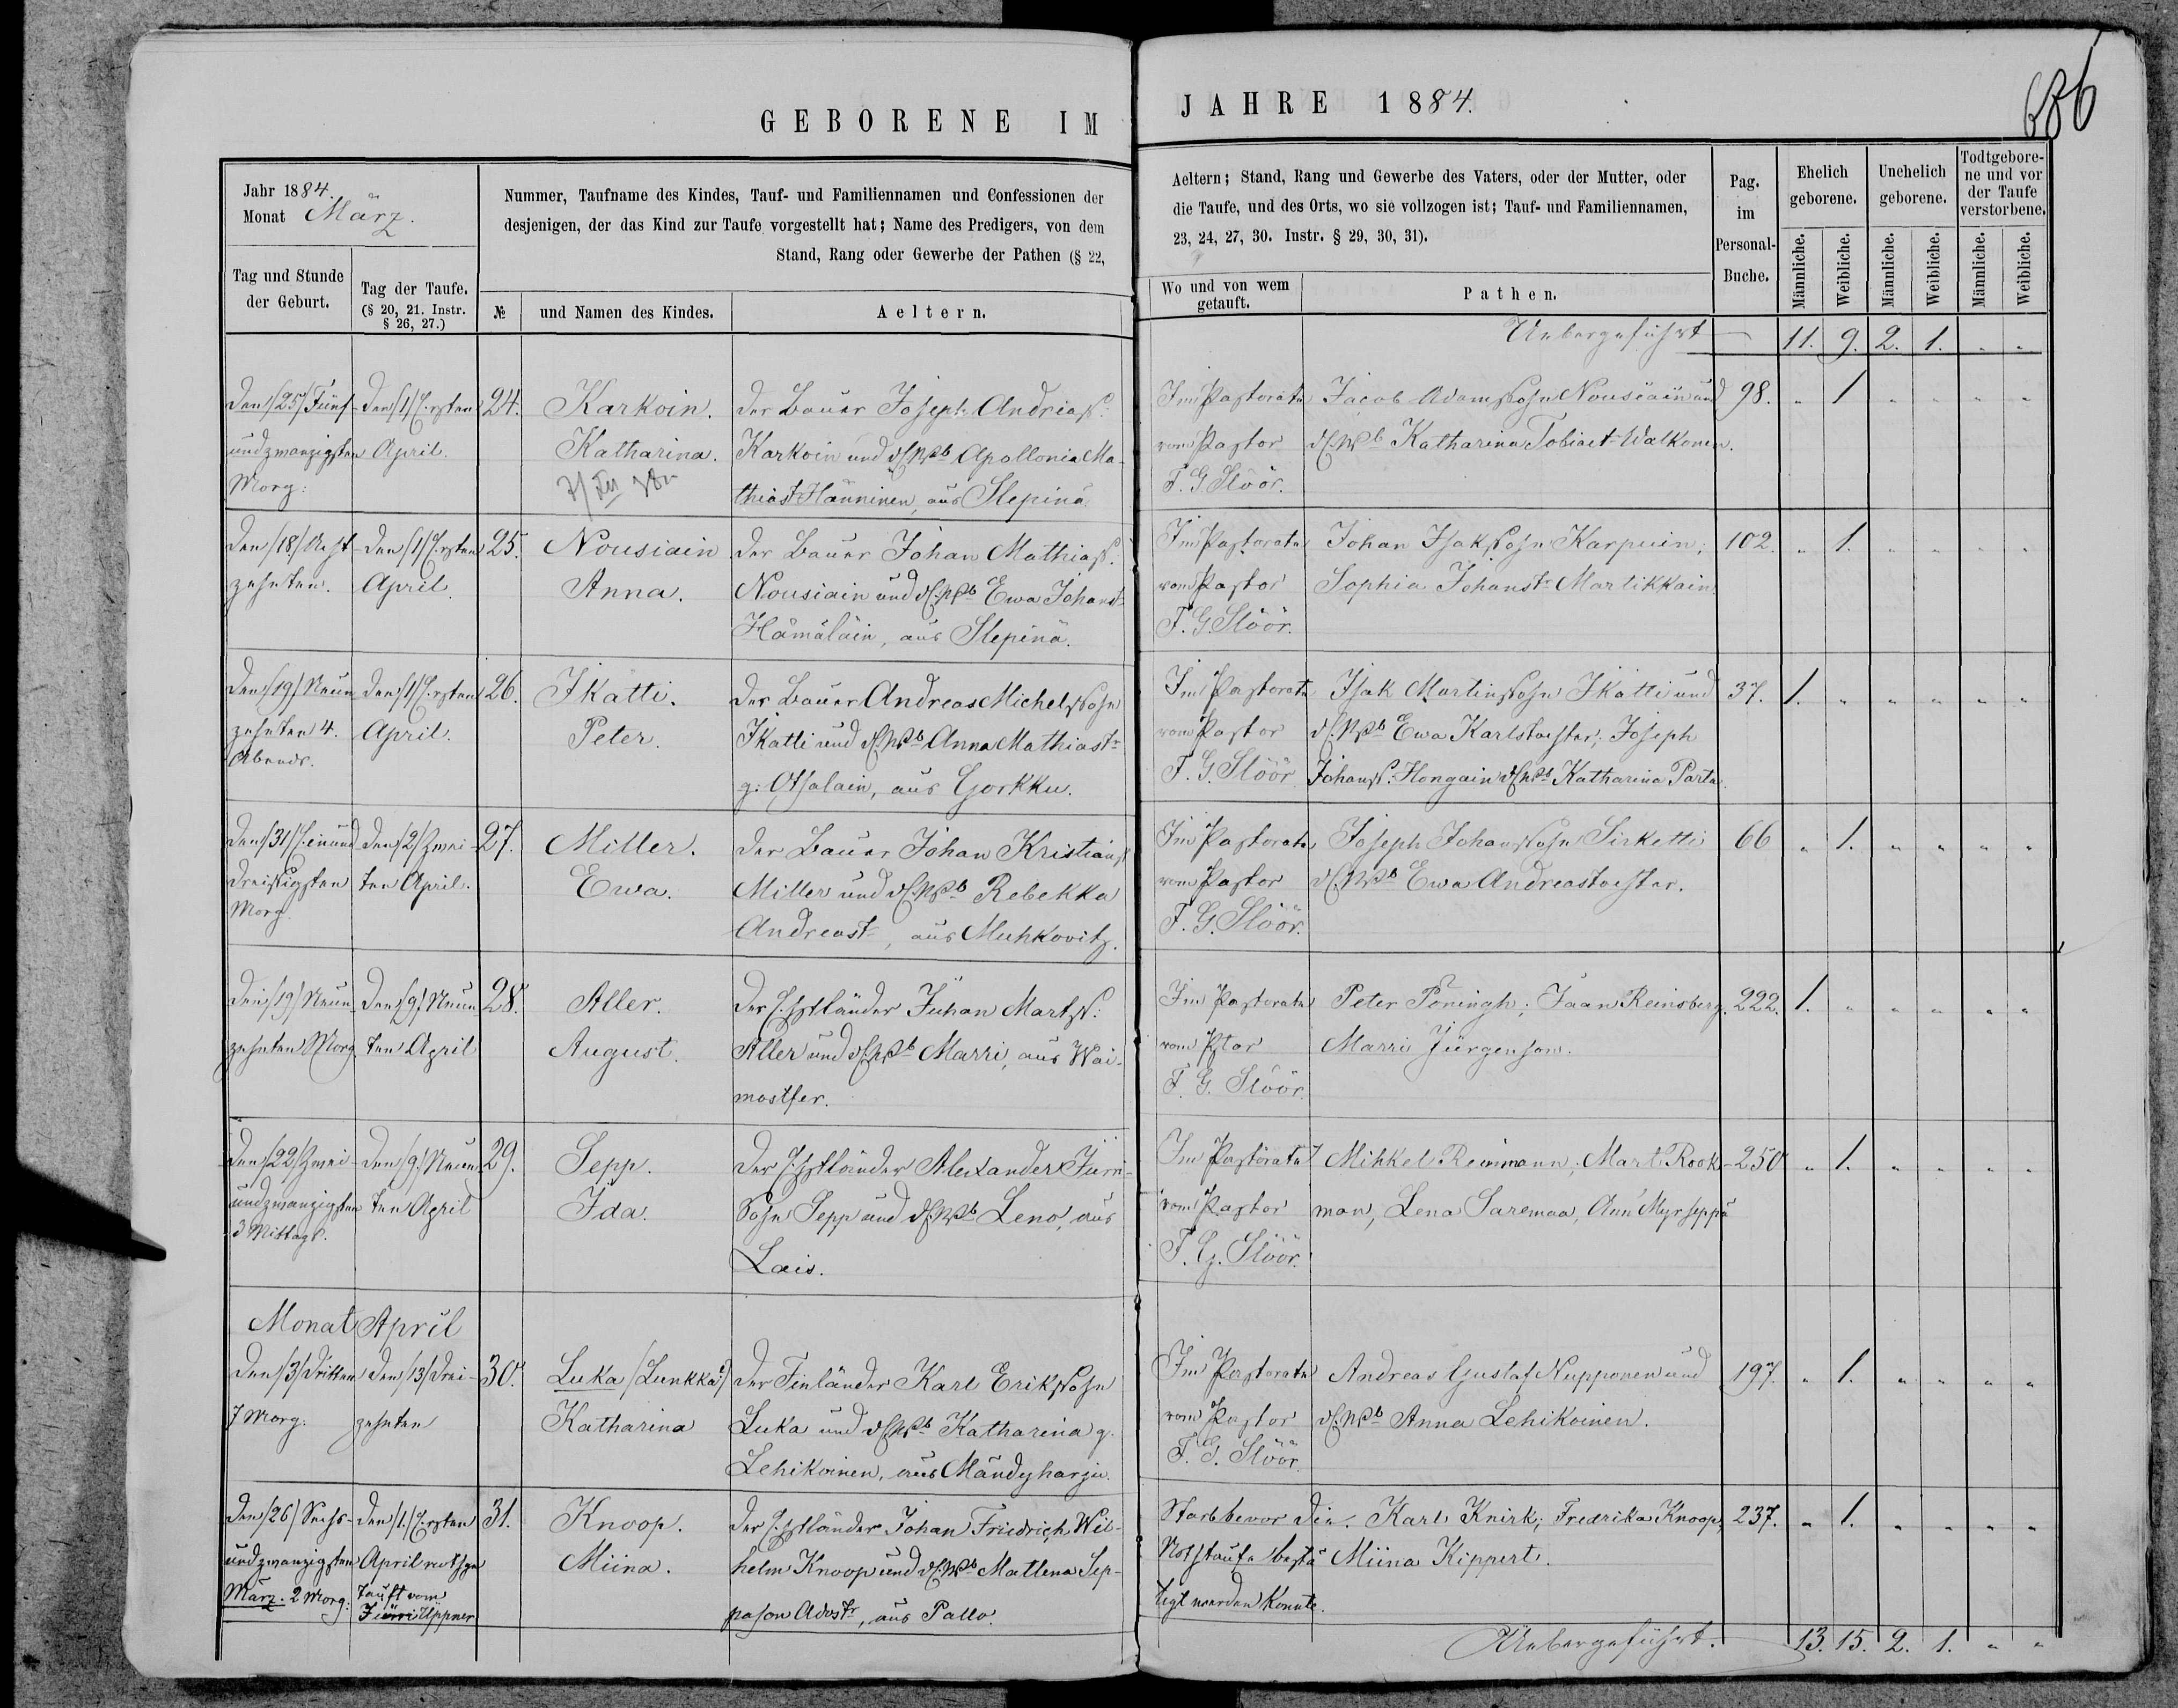 GEBORENE IM JAHRE 1884.
686
Jahr 1884.
Monat März.
Nummer, Taufname des Kindes, Tauf- und Familiennamen und Confessionen der
desjenigen, der das Kind zur Taufe vorgestellt hat; Name des Predigers, von dem
Stand, Rang oder Gewerbe der Pathen (§ 22,
Aeltern; Stand, Rang und Gewerbe des Vaters, oder der Mutter, oder
die Taufe, und des Orts, wo sie vollzogen ist; Tauf- und Familiennamen,
23, 24, 27, 30. Instr. § 29, 30, 31).
Pag.
im
Personal-
Buche.
Ehelich
geborene.
Unehelich
geborene.
Todtgebore-
ne und vor
der Taufe
verstorbene.
Männliche.
Weibliche.
Männliche.
Weibliche.
Männliche.
Weibliche.
Tag und Stunde
der Geburt.
Tag der Taufe.
(§ 20, 21. Instr.
§ 26, 27.)
№
und Namen des Kindes.
Aeltern.
Wo und von wem
getauft.
Pathen.
Uebergeführt — 11. 9. 2. 1. „ „
Den /25/ Fünf-
undzwanzigsten
Morg:
Den /1/ Ersten
April.
24.
Karkoin.
Katharina.
Der Bauer Joseph Andreas S:
Karkoin und ds. Wb Apollonia Ma-
thiast Hänninen, aus Slepina.
Im Pastorate
vom Pastor
F. G. Slöör.
Jacob Adamssohn Nousiain und
ds. Wb Katharina Tobiast Walkonen.
98. „ 1 „ „ „ „
Den /18/ Acht-
zehnten.
Den /1/ Ersten
April.
25.
Nousiain
Anna.
Der Bauer Johan Mathias S.
Nousiain und ds. Wb Ewa Johanst
Hämäläin, aus Slepinä.
Im Pastorate
vom Pastor
F. G. Slöör.
Johan Isakssohn Karpuin;
Sophia Johanstr Martikkain.
102. „ 1. „ „ „ „
Den /19/ Neun
zehnten 4.
Abends.
Den /1/ Ersten
April.
26.
Ikätti.
Peter.
Der Bauer Andreas Michelssohn
Ikätti und ds. Wb Anna Mathiastr
g: Otsalain, aus Gorkku.
Im Pastorate
vom Pastor
F. G. Slöör
Isak Martinssohn Ikätti und
ds. Wb Ewa Karlstochter; Joseph
Johans S: Hongain ds. Wb Katharina Parta.
37. 1. „ „ „ „ „
Den /31/ Einund
dreißigsten
Morg.
Den /2/ Zwei-
ten April.
27.
Miller.
Ewa.
Der Bauer Johan Kristians
Miller und ds. Wb Rebekka
Andreast, aus Muhkovitz.
Im Pastorate
vom Pastor
F. G. Slöör.
Joseph Johanssohn Sirketti
ds. Wb Ewa Andreastochter.
66 „ 1. „ „ „ „
Den /19/ Neun-
zehnten Morg
Den /9/ Neun
ten April
28.
Aller.
August.
Der Estländer Juhan Marts S:
Aller und ds. Wb Marri, aus Wai-
mastfer.
Im Pastorate
vom Pstor
F. G. Slöör.
Peter Töningh; Jaan Reinsberg,
Marri Jürgenson.
222. 1. „ „ „ „ „
Den /22/ Zwei-
undzwanzigsten
3 Mittags.
Den /9/ Neun
ten April
29.
Sepp.
Ida.
Der Estländer Alexander Jürri-
Sohn Sepp und ds. Wb Leno, aus
Lais.
Im Pastorate
vom Pastor
F. G. Slöör.
Mihkel Reinmann; Mart Rook-
man, Lena Saremaa, Ann Myrseppä
250 „ 1. „ „ „ „
Monat April
Den /3/ Dritten
7 Morg:
Den /13/ Drei-
zehnten
30.
Luka /Lunkka?/
Katharina
Der Finländer Karl Erikssohn
Luka und ds. Wb Katharina g.
Lehikoinen, aus Mändyharju.
Im Pastorate
vom Pastor
F. G. Slöör.
Andreas Gustaf Nupponen und
ds. Wb Anna Lehikoinen.
197. „ 1. „ „ „ „
Den /26/ Sechs-
undzwanzigsten
März. 2 Morg:
Den /1./ Ersten
April nothge
tauft vom
Jürri Uppner
31.
Knoop.
Miina.
Der Estländer Johan Friedrich Wil-
helm Knoop und ds. Wb Mattena Sep-
pason Adostr, aus Pallo.
Starb bevor die
Nothtaufe bestä
tigt werden konnte.
Karl Knirk; Fredrika Knoop,
Miina Kippert.
237. „ 1. „ „ „ „
Uebergeführt. 13. 15. 2. 1. „ „